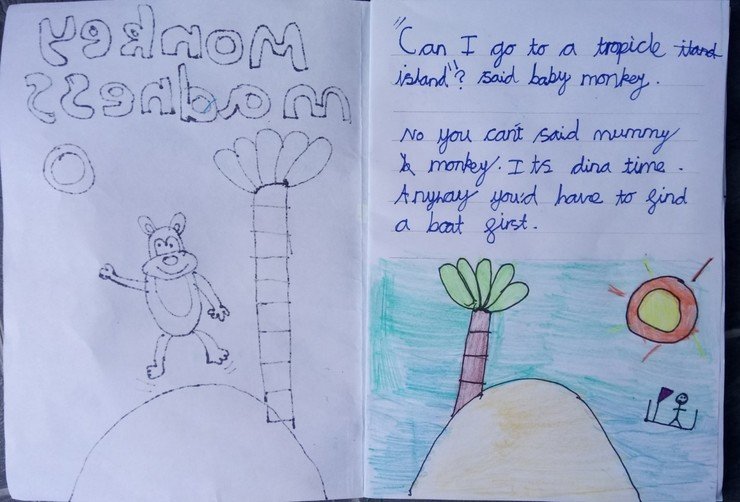 Monkey
madness
"Can I go to a tropicle iland
island"? said baby monkey.
No you can't said mummy
monkey. Its dina time.
Anyway you'd have to find
a boat first.